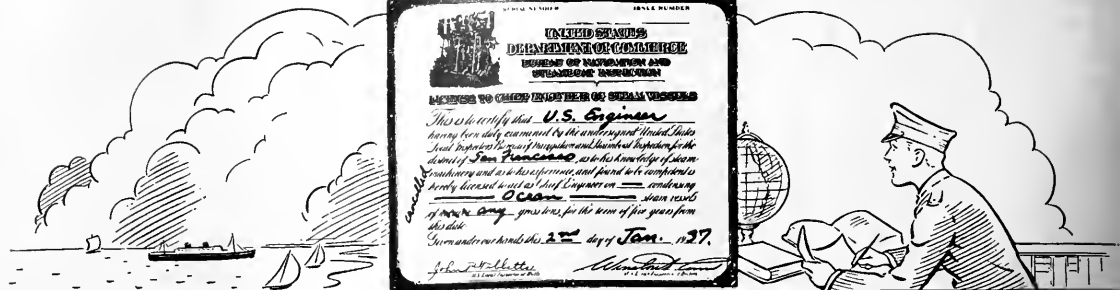 SERIAL NUMBER ISSUE NUMBER
UNITED STATES
DEPARTMENT OF COMMERCE
BUREAU OF NAVIGATION AND
STEAMBOAT INSPECTION
LICENSE TO CHIEF ENGINEER OF STEAM VESSELS
This is to certify that U.S. Engineer
having been duly examined by the undersigned United States
Local Inspectors Bureau of Navigation and Steamboat Inspection, for the
district of San Francesso, as to his knowledge of steam
machinery and as to his experience, and found to be competent is
hereby licensed to act as Chief Engineer on condensing
Ocean steam vessels
of any gross tons, for the term of five years from
this date.
Given under our hands this 2nd day of Jan. 1937.
cancelled